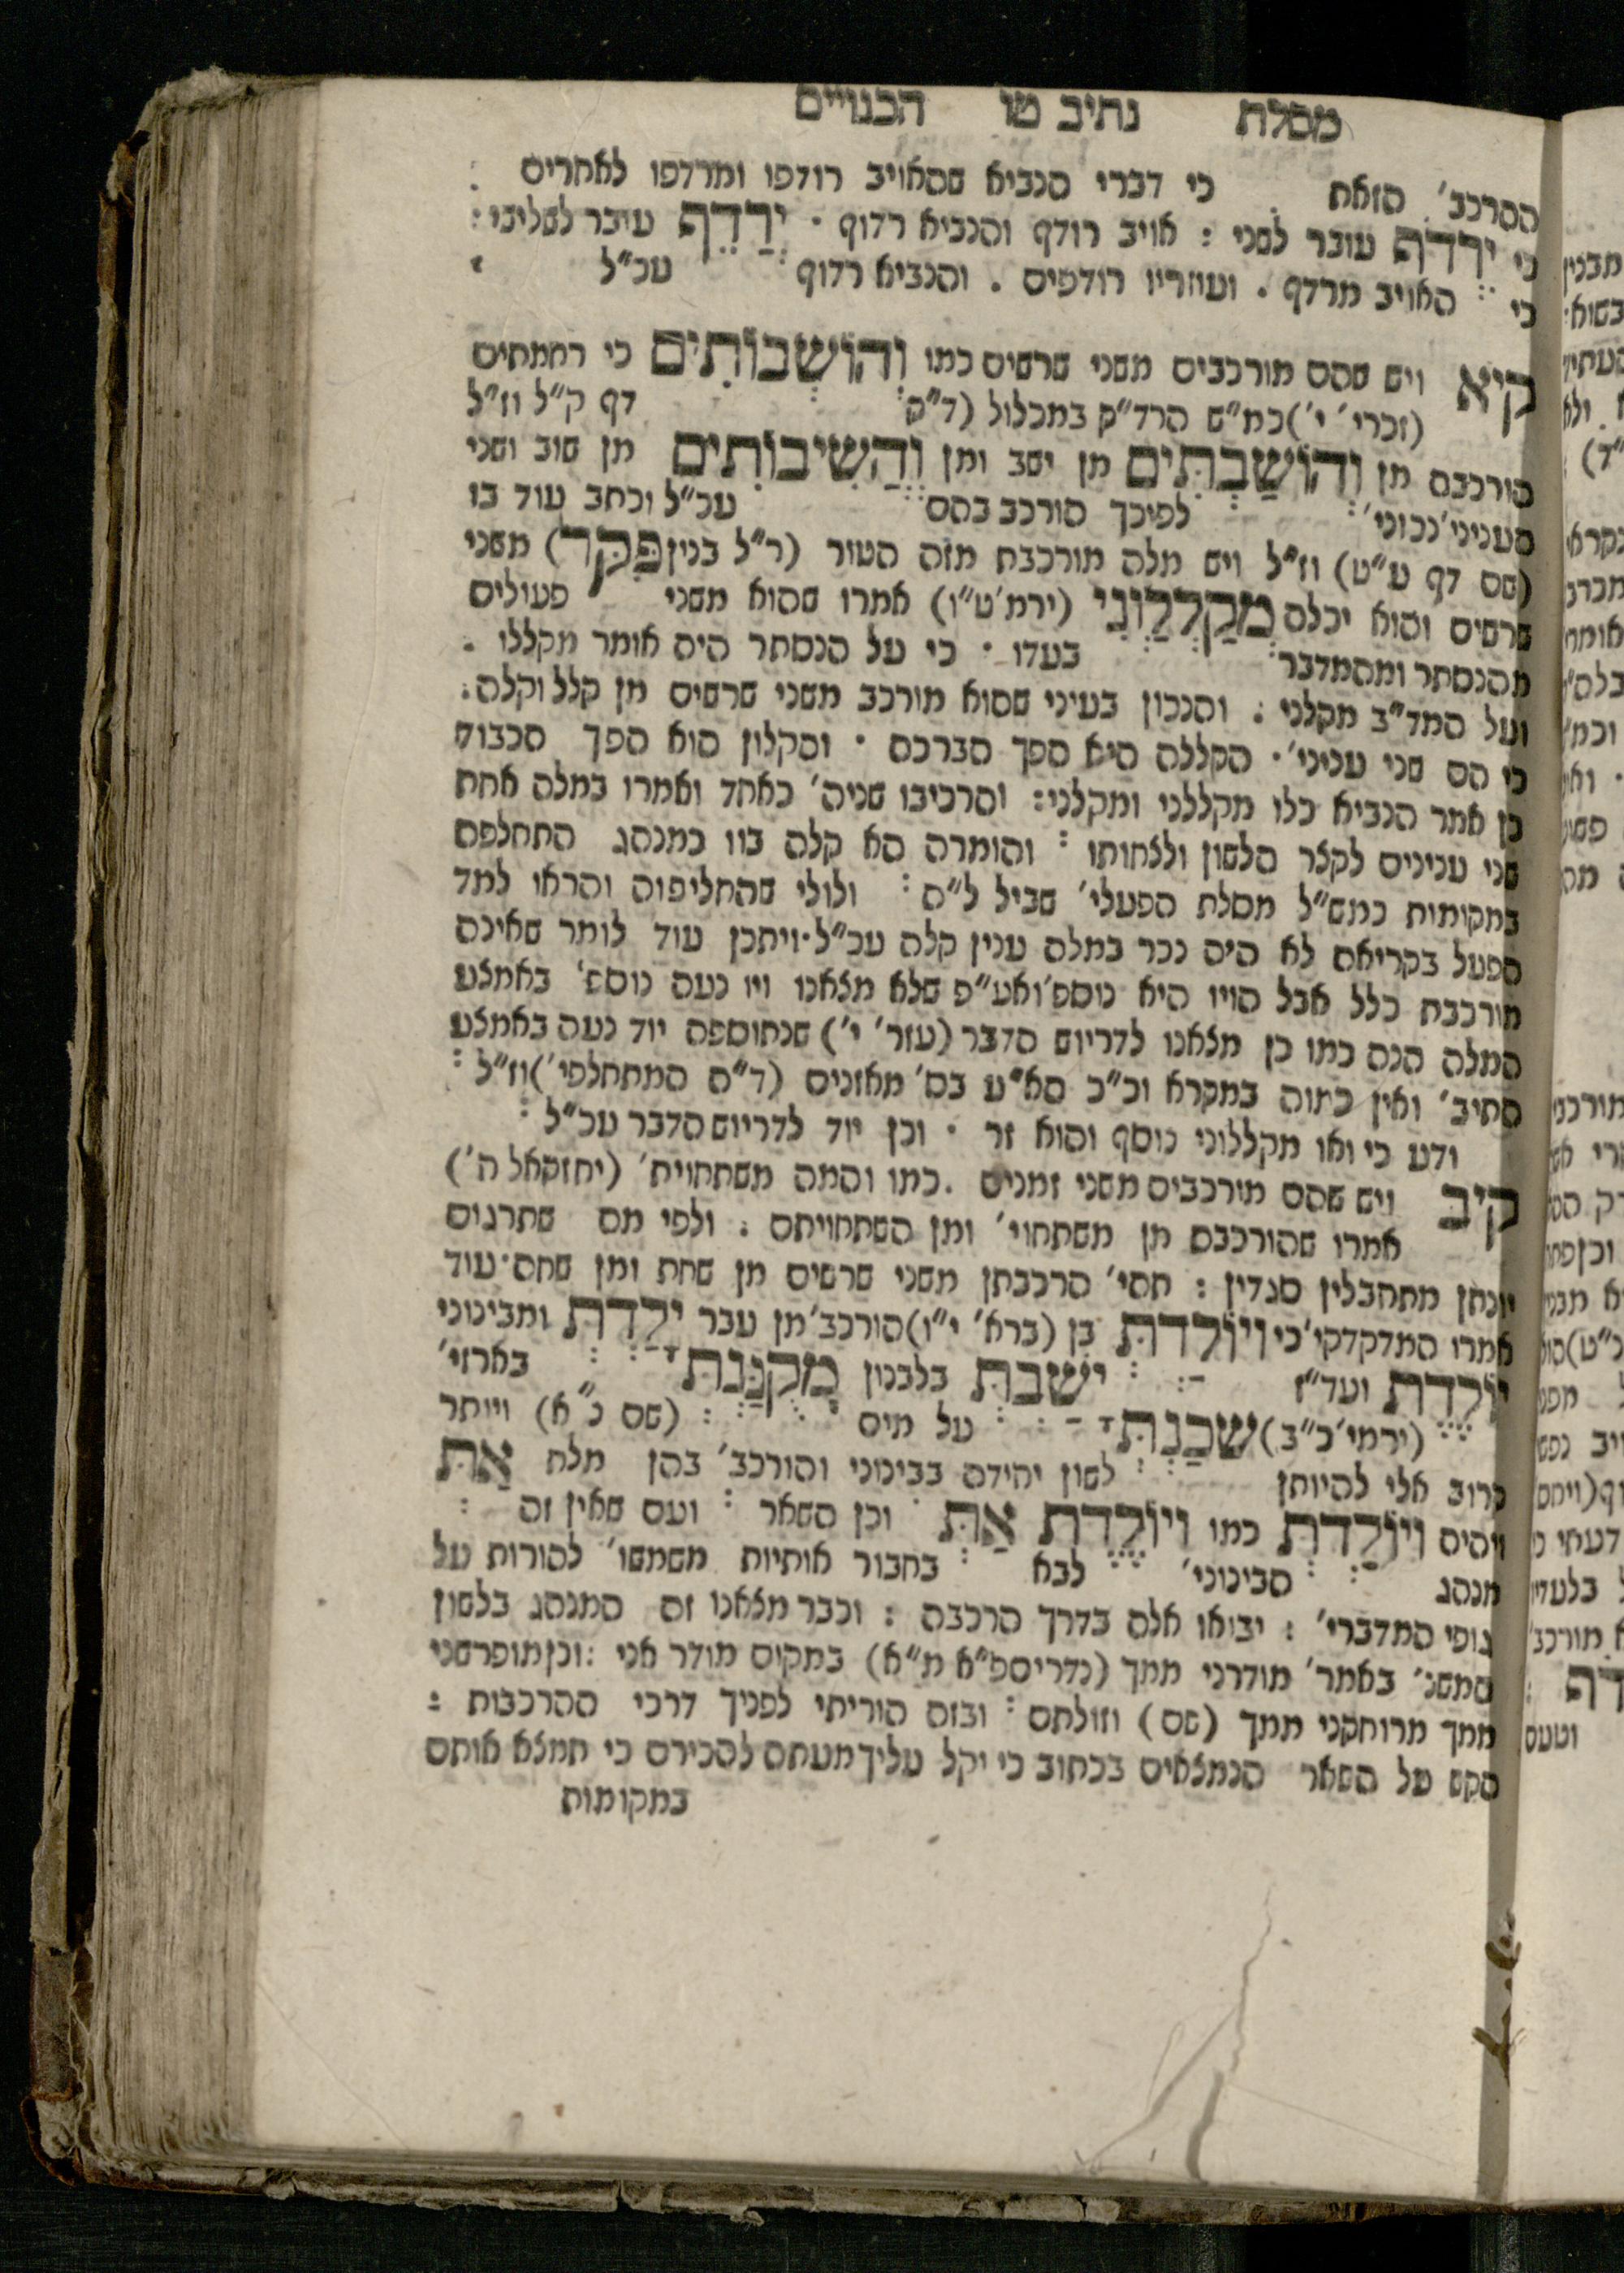 מסלת נתיב טו הכנויים
הסרכב׳ הזאת כי דברי הנביא שהאויב רודפו ומרדפו לאחרים :
כי יִרְדֹּף עובר לשני : אויב רודף והנביא רדוף · יְרַדֵּף עובר לשלישי :
כי האויב מרדף . ועוזריו רודפים . והנביא רדוף עכ״ל
קיא ויש שהם מורכבים משני שרשים כמו וְהוֹשְׁבוֹתִים כי רחמתים
(זכרי׳ י׳) כמ״ש הרד״ק במכלול (ד״ק דף ק״ל וז״ל
הורכבה מן וְהוֹשַׁבְתִּים מן ישב ומן וַהֲשִׁיבוֹתִים מן שוב ושני
העניני׳ נכוני׳ : לפיכך הורכב בהם עכ״ל וכתב עוד בו
(שם דף ע״ט) וז״ל ויש מלה מורכבת מזה הטור (ר״ל בנין פִּקֵּד) משני
שרשים והוא יכלה מְקַלְלַוְנִי (ירמ׳ ט״ו) אמרו שהוא משני פעולים
מהנסתר ומהמדבר בעדו · כי על הנסתר היה אומר מקללו .
ועל המד״ב מקלני : והנכון בעיני שהוא מורכב משני שרשים מן קלל וקלה .
כי הם שני עניני׳ · הקללה היא הפך הברכה · והקלון הוא הפך הכבוד
כן אמר הנביא כלו מקללני ומקלני : והרכיבו שניה׳ כאחד ואמרו במלה אחת
שני ענינים לקצר הלשון ולצחותו : והומרה הא קלה בוו כמנהג התחלפה
במקומות כמש״ל מסלת הפעלי׳ שביל ל״ה : ולולי שהחליפוה והראו למד
הפעל בקריאה לא היה נכר במלה ענין קלה עכ״ל · ויתכן עוד לומר שאינה
מורכבת כלל אבל הויו היא נוספ׳ ואע״פ שלא מצאנו ויו נעה נוספ׳ באמצע
המלה הנה כמו כן מצאנו לדריוש הדבר (עזר׳ י׳) שנתוספה יוד נעה באמצע
התיב׳ ואין כמוה במקרא וכ״כ הא״ע בס׳ מאזנים (ד״ה המתחלפי׳) וז״ל :
ודע כי ואו מקללוני נוסף והוא זר · וכן יוד לדריוש הדבר עכ״ל :
קיב ויש שהם מורכבים משני זמנים . כמו והמה משתחוית׳ (יחזקאל ח׳)
אמרו שהורכבה מן משתחוי׳ ומן השתחויתם : ולפי מה שתרגום
יונתן מתחבלין סגדין : תהי׳ הרכבתן משני שרשים מן שחת ומן שחה · עוד
אמרו המדקדקי׳ כי וְיוֹלַדְתְּ בן (ברא׳ י״ו) הורכב׳ מן עבר יָלַדְתְּ ומבינוני
יוֹלֶדֶת ועד״ז יֹשַׁבְתְּ בלבנון מְקֻנַּנְתְּ בארזי׳
(ירמי׳ כ״ב) שֹׁכַנְתְּ על מים : (שם נ״א) ויותר
קרוב אלי להיותן לשון יחידה בבינוני והורכב׳ בהן מלת אַתְּ
ויהיה וְיוֹלַדְתְּ כמו וְיוֹלֶדֶת אַתְּ וכן השאר : ועם שאין זה :
מנהג הבינוני׳ לבא בחבור אותיות משמשו׳ להורות על
גופי המדברי׳ : יבואו אלה בדרך הרכבה : וכבר מצאנו זה המנהג בלשון
המשנ׳ באמר׳ מודרני ממך (נדרים פ״א מ״א) במקום מודר אני : וכן מופרשני
ממך מרוחקני ממך (שם) וזולתם : ובזה הוריתי לפניך דרכי ההרכבות :
הקש על השאר הנמצאים בכתוב כי יקל עליך מעתה להכירם כי תמצא אותם
במקומות